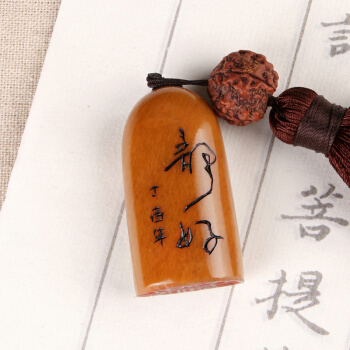 静好
丁酉年
菩提